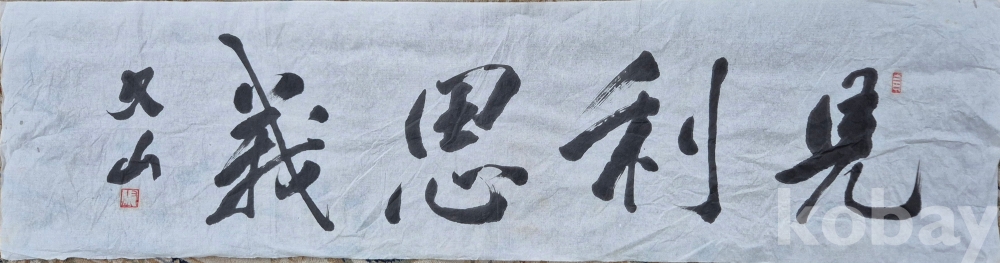 見利思義
又山
kobay